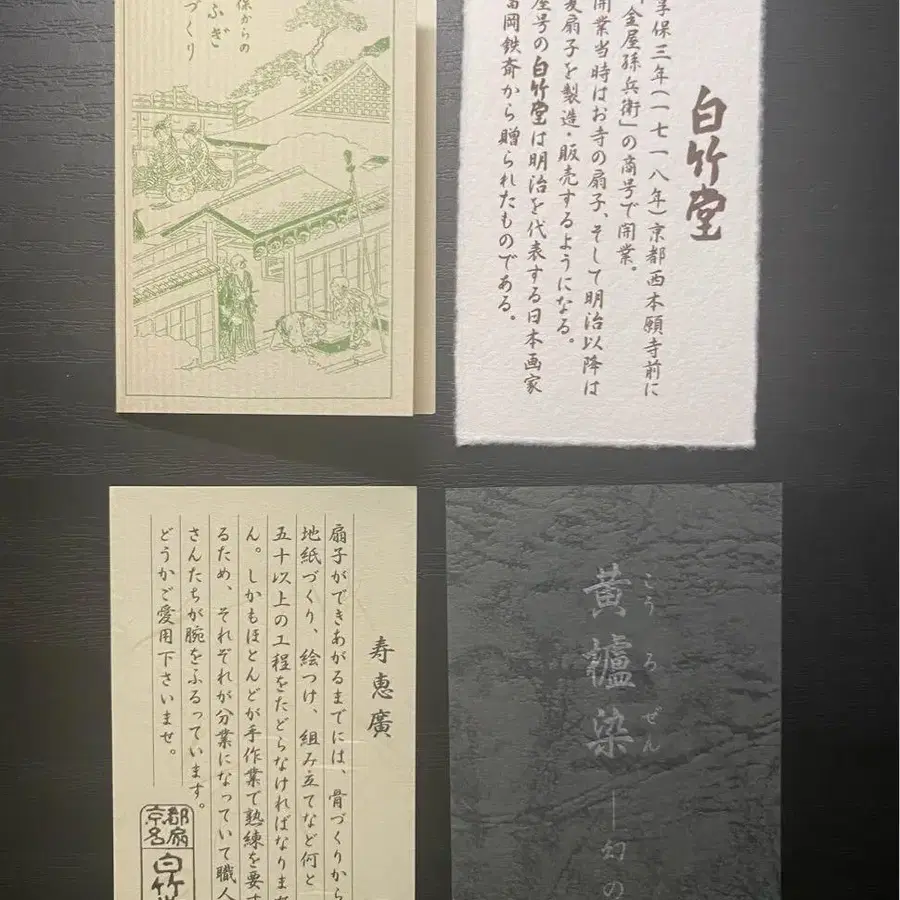 保からの
ふぎ
づくり
白竹堂
享保三年(一七一八年)京都西本願寺前に
「金屋孫兵衛」の商号で開業。
開業当時はお寺の扇子、そして明治以降は
夏扇子を製造・販売するようになる。
屋号の白竹堂は明治を代表する日本画家
富岡鉄斎から贈られたものである。
寿恵廣
扇子ができあがるまでには、骨づくりから
地紙づくり、絵つけ、組み立てなど何と
五十以上の工程をたどらなければなりませ
ん。しかもほとんどが手作業で熟練を要す
るため、それぞれが分業になっていて職人
さんたちが腕をふるっています。
どうかご愛用下さいませ。
京都
名扇
白竹堂
こうろぜん
黄櫨染
―幻の